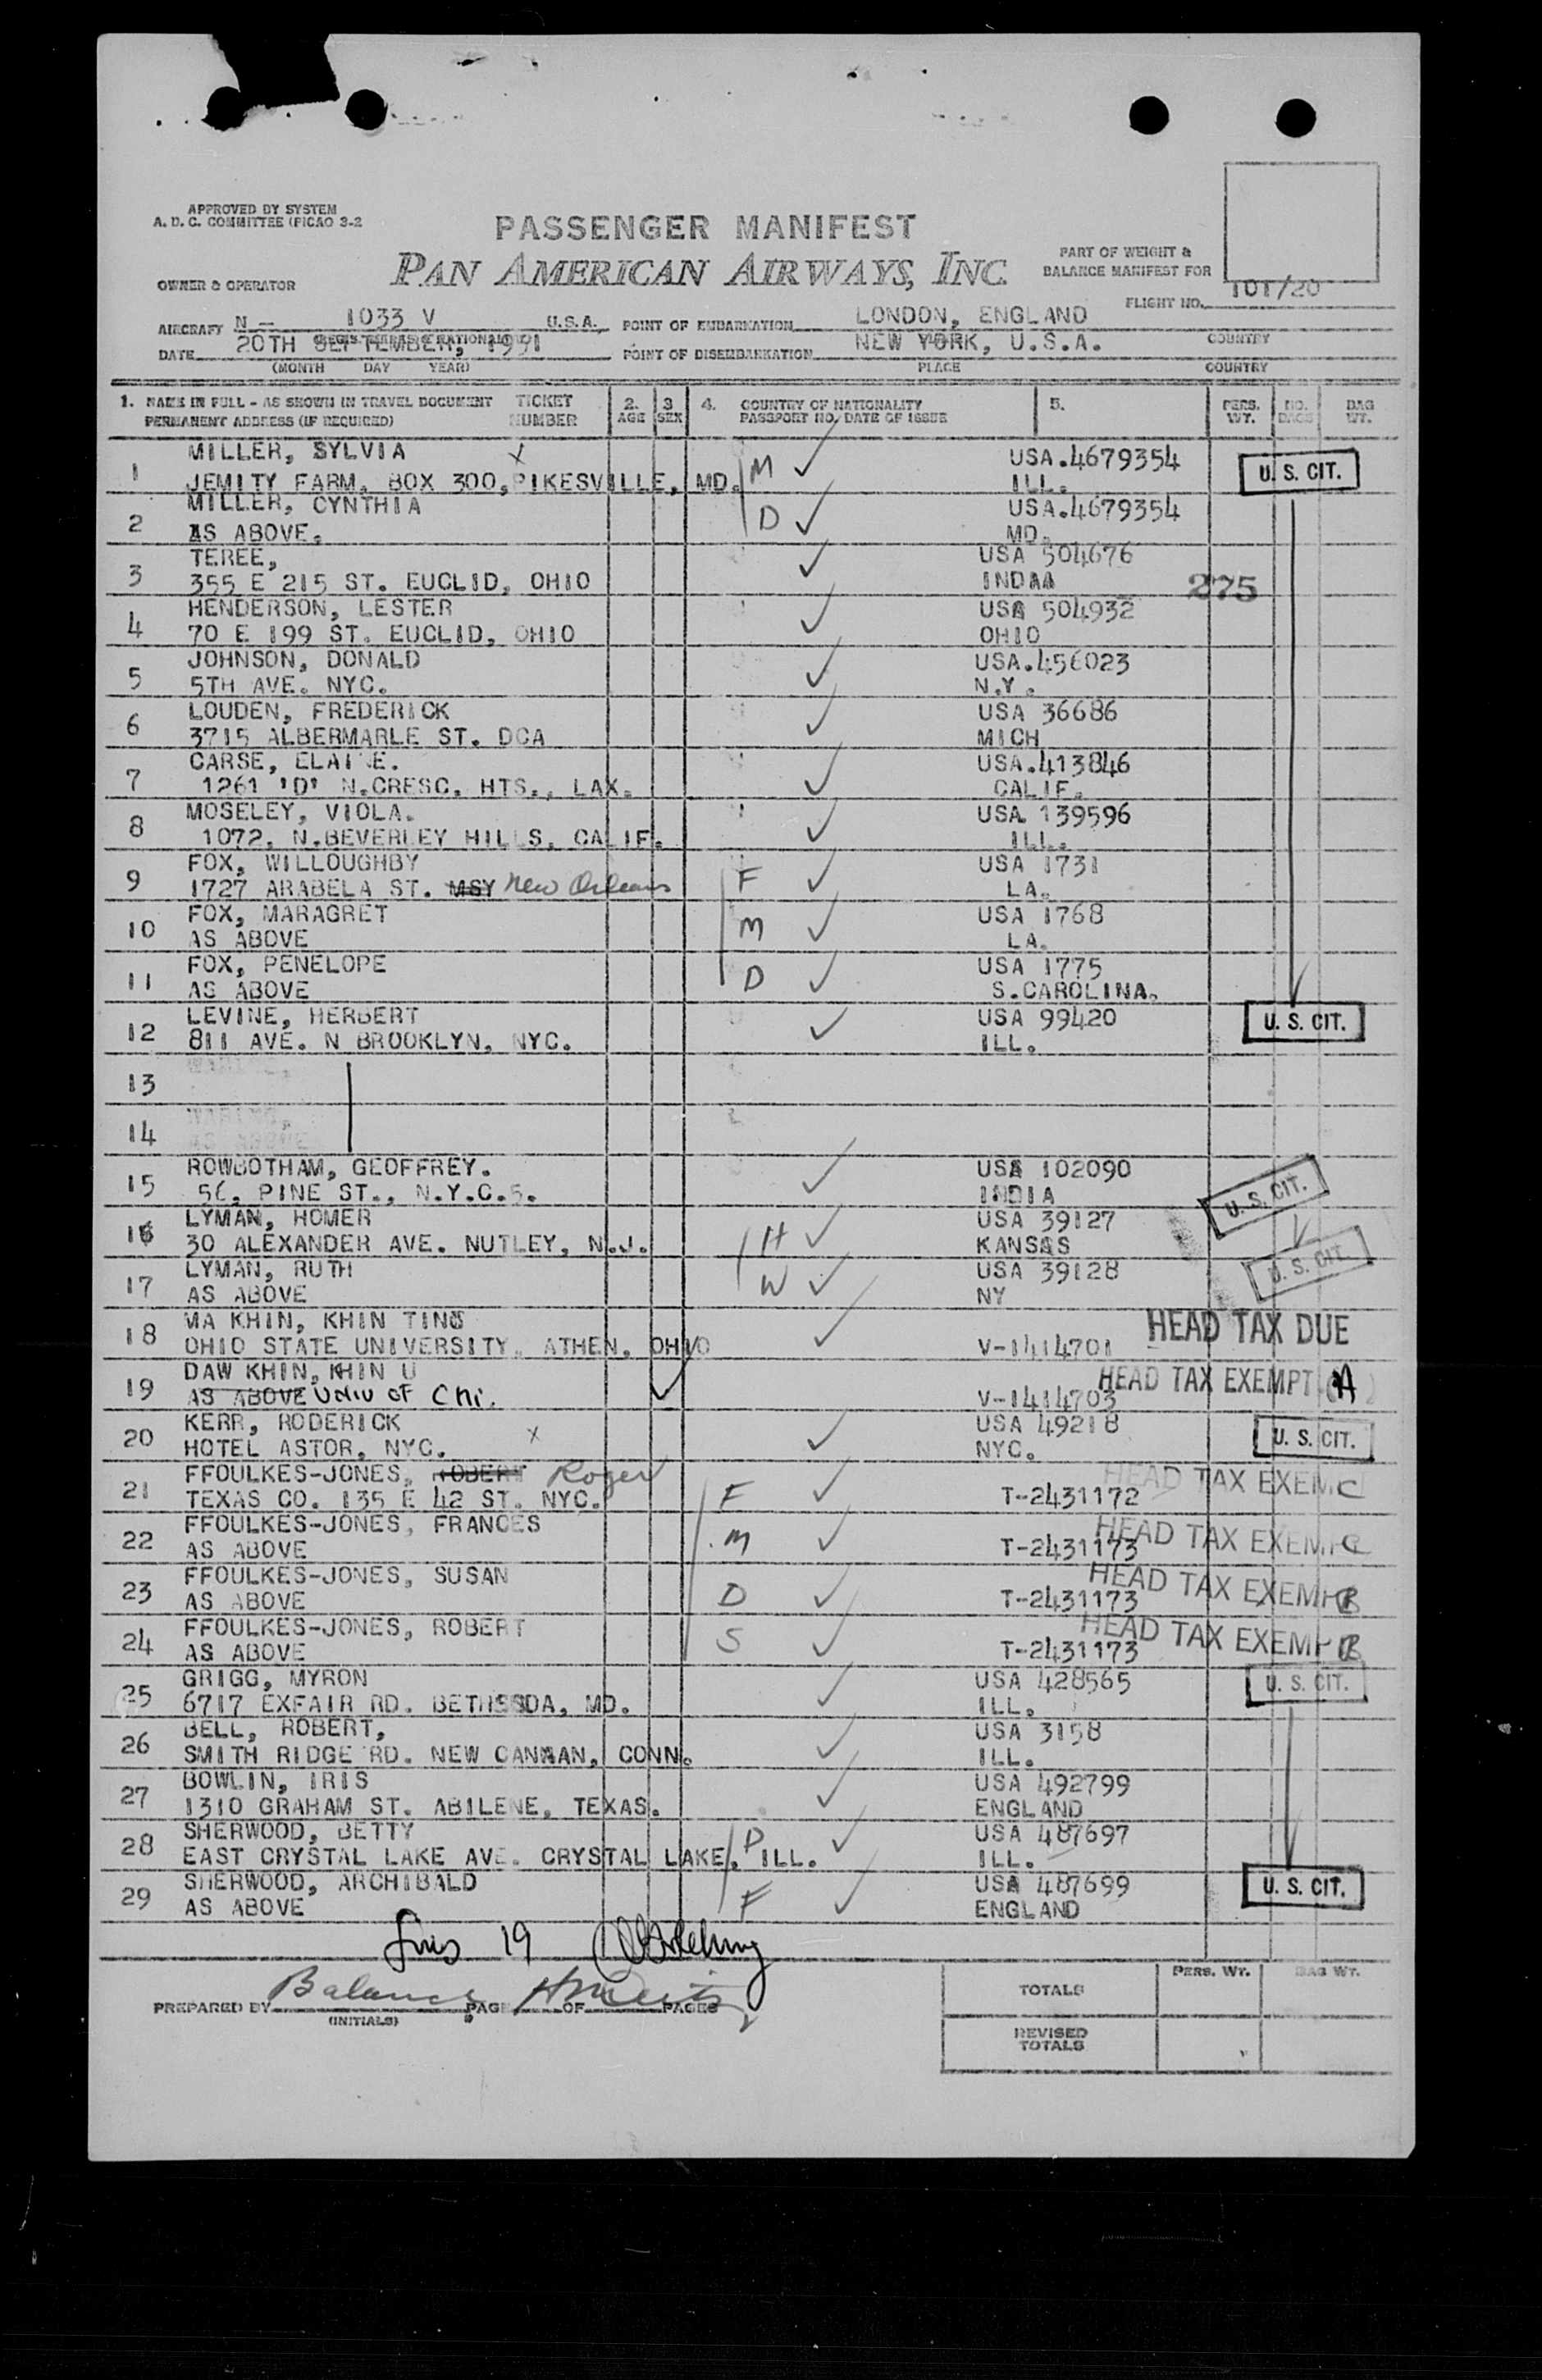 APPROVED BY SYSTEM
A. D. C. COMMITTEE (PICAO 3-2
PASSENGER MANIFEST
PAN AMERICAN AIRWAYS, INC.
PART OF WEIGHT &
BALANCE MANIFEST FOR
OWNER & OPERATOR
FLIGHT NO. 101/20
AIRCRAFT N - 1033 V U.S.A. POINT OF EMBARKATION LONDON, ENGLAND
DATE 20TH SEPTEMBER, 1951 POINT OF DISEMBARKATION NEW YORK, U.S.A. COUNTRY
(MONTH DAY YEAR) PLACE COUNTRY
1. NAME IN FULL - AS SHOWN IN TRAVEL DOCUMENT TICKET 2. 3 4. COUNTRY OF NATIONALITY 5. PERS. NO. BAG
PERMANENT ADDRESS (IF REQUIRED) NUMBER AGE SEX PASSPORT NO. DATE OF ISSUE WT. BAGS WT.
MILLER, SYLVIA X USA.4679354
1 JEMITY FARM, BOX 300, PIKESVILLE, MD. M ILL. U. S. CIT.
MILLER, CYNTHIA USA.4679354
2 AS ABOVE. D MD.
TEREE, USA 504676
3 355 E 215 ST. EUCLID, OHIO INDAA 275
HENDERSON, LESTER USA 504932
4 70 E 199 ST. EUCLID, OHIO OHIO
JOHNSON, DONALD USA.456023
5 5TH AVE. NYC. N.Y.
LOUDEN, FREDERICK USA 36686
6 3715 ALBERMARLE ST. DCA MICH
CARSE, ELAINE. USA.413846
7 1261 'D' N.CRESC. HTS., LAX. CALIF.
MOSELEY, VIOLA. USA 139596
8 1072, N.BEVERLEY HILLS, CALIF. ILL.
FOX, WILLOUGHBY USA 1731
9 1727 ARABELA ST. MSY New Orleans F LA.
FOX, MARAGRET USA 1768
10 AS ABOVE M LA.
FOX, PENELOPE USA 1775
11 AS ABOVE D S.CAROLINA.
LEVINE, HERBERT USA 99420
12 811 AVE. N BROOKLYN, NYC. ILL. U. S. CIT.
13
14
ROWBOTHAM, GEOFFREY. USA 102090
15 56, PINE ST., N.Y.C.5. INDIA U. S. CIT.
LYMAN, HOMER USA 39127
16 30 ALEXANDER AVE. NUTLEY, N.J. H KANSAS
LYMAN, RUTH USA 39128 U. S. CIT.
17 AS ABOVE W NY
MA KHIN, KHIN TING HEAD TAX DUE
18 OHIO STATE UNIVERSITY, ATHEN, OHIO V-1414701
DAW KHIN, KHIN U HEAD TAX EXEMPT A
19 AS ABOVE Univ of Chi. V-1414703
KERR, RODERICK USA 49218
20 HOTEL ASTOR, NYC. X NYC. U. S. CIT.
FFOULKES-JONES, ROBERT Roger HEAD TAX EXEM C
21 TEXAS CO. 135 E 42 ST. NYC. F T-2431172
FFOULKES-JONES, FRANCES HEAD TAX EXEMP C
22 AS ABOVE M T-2431173
FFOULKES-JONES, SUSAN HEAD TAX EXEMP B
23 AS ABOVE D T-2431173
FFOULKES-JONES, ROBERT HEAD TAX EXEMP B
24 AS ABOVE S T-2431173
GRIGG, MYRON USA 428565
25 6717 EXFAIR RD. BETHSSDA, MD. ILL. U. S. CIT.
BELL, ROBERT, USA 3158
26 SMITH RIDGE RD. NEW CANAAN, CONN. ILL.
BOWLIN, IRIS USA 492799
27 1310 GRAHAM ST. ABILENE, TEXAS. ENGLAND
SHERWOOD, BETTY USA 487697
28 EAST CRYSTAL LAKE AVE. CRYSTAL LAKE, ILL. D ILL.
SHERWOOD, ARCHIBALD USA 487699
29 AS ABOVE F ENGLAND U. S. CIT.
19
PREPARED BY Balance PAGE OF PAGES
(INITIALS)
PERS. WT. BAG WT.
TOTALS
REVISED
TOTALS